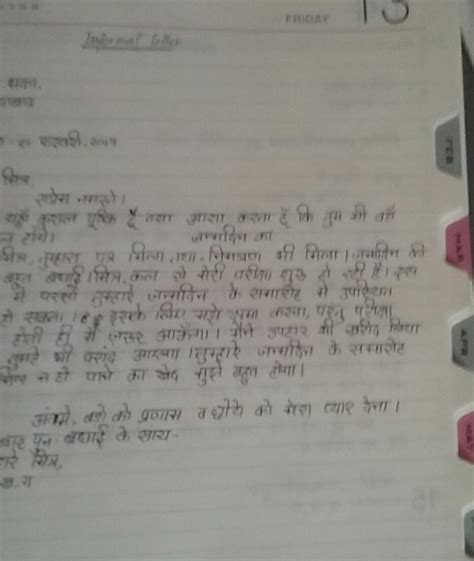 FRIDAY 13
Informal letter
भवन,
जनवरी, २०१५
मित्र,
सप्रेम नमस्ते।
यहाँ कुशल पूर्वक हूँ तथा आशा करता हूँ कि तुम भी वहाँ
होंगे। जन्मदिन का
मित्र, तुम्हारा पत्र मिला, तथा निमंत्रण भी मिला। जन्मदिन की
बहुत बधाई। मित्र, कल से मेरी परीक्षा शुरू हो रही है। इस
मैं परसो तुम्हारे जन्मदिन के समारोह में उपस्थित
हो सकता। इसके लिए मुझे क्षमा करना, परंतु परीक्षा
होती ही मैं ज़रूर आऊँगा। मैंने उपहार भी खरीद लिया
तुम्हे भी पसंद आएगा। तुम्हारे जन्मदिन के समारोह
न हो पाने का खेद मुझे बहुत होगा।
अंकल, बड़ो को प्रणाम व छोटो को मेरा प्यार देना।
बार पुन बधाई के साथ-
मित्र,
ख.ग
FEB
MAR
APR
MAY